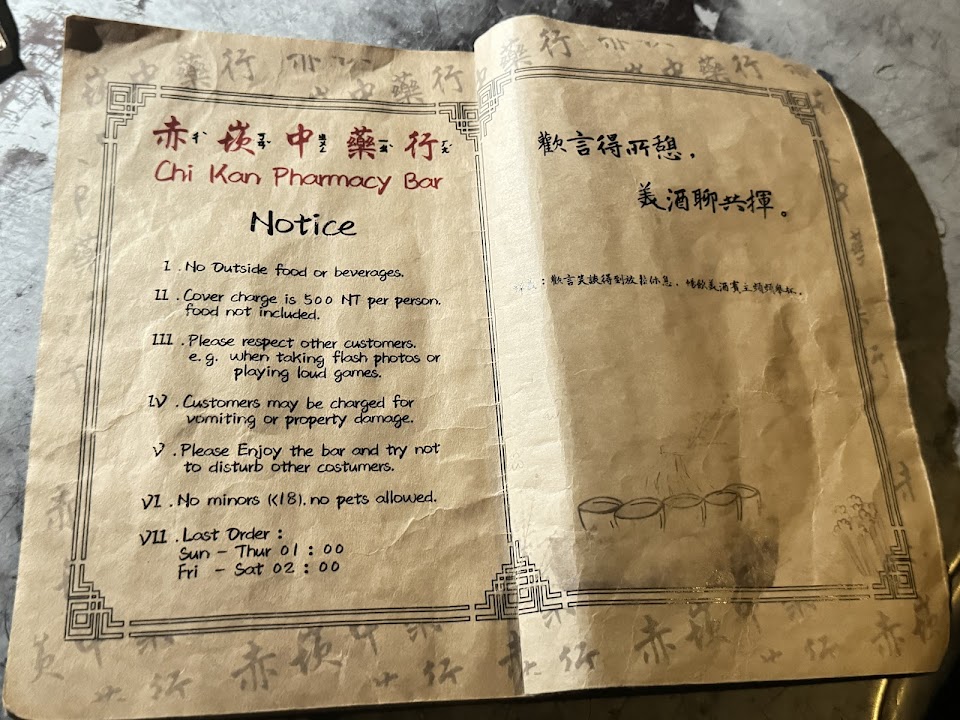 赤崁中藥行
Chi Kan Pharmacy Bar
Notice
I. No Outside food or beverages.
II. Cover charge is 500 NT per person.
food not included.
III. Please respect other customers.
e.g. when taking flash photos or
playing loud games.
IV. Customers may be charged for
vomiting or property damage.
V. Please Enjoy the bar and try not
to disturb other costumers.
VI. No minors (<18), no pets allowed.
VII. Last Order :
Sun - Thur 01 : 00
Fri - Sat 02 : 00
歡言得所憩，
美酒聊共揮。
：歡言笑談得到放鬆休息，暢飲美酒賓主頻頻舉杯。